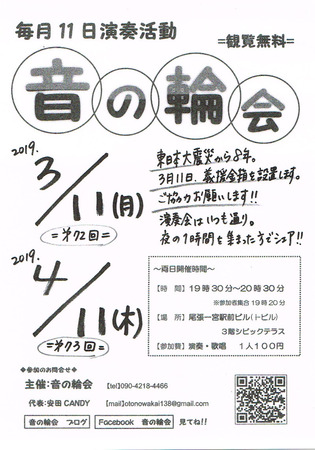 毎月11日演奏活動
=観覧無料=
音の輪会
2019.
3/11(月)
=第72回=
東日本大震災から8年。
3月11日、義援金箱を設置します。
ご協力お願いします!!
演奏会はいつも通り。
夜の1時間を集まった方でシェア!!
2019.
4/11(木)
=第73回=
~両日開催時間~
【時 間】19時30分~20時30分
※参加者集合19時20分
【場 所】尾張一宮駅前ビル(i-ビル)
3階シビックテラス
【参加費】演奏・歌唱 1人100円
◆参加のお問合せ◆
主催:音の輪会 【tel】090-4218-4466
代表:安田CANDY 【mail】otonowakai138@gmail.com
音の輪会 ブログ Facebook 音の輪会 見てね!!